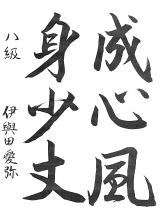 成心風
身少丈
八級 伊與田愛弥